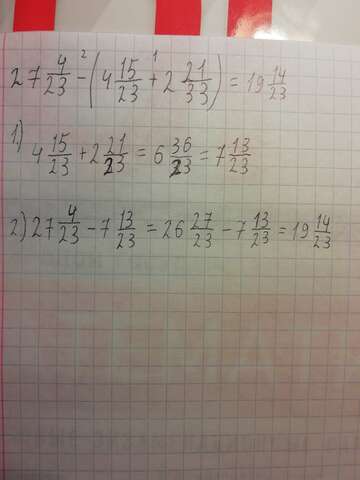 27 4/23 -² (4 15/23 +¹ 2 21/33) = 19 14/23
1) 4 15/23 + 2 21/23 = 6 36/23 = 7 13/23
2) 27 4/23 - 7 13/23 = 26 27/23 - 7 13/23 = 19 14/23